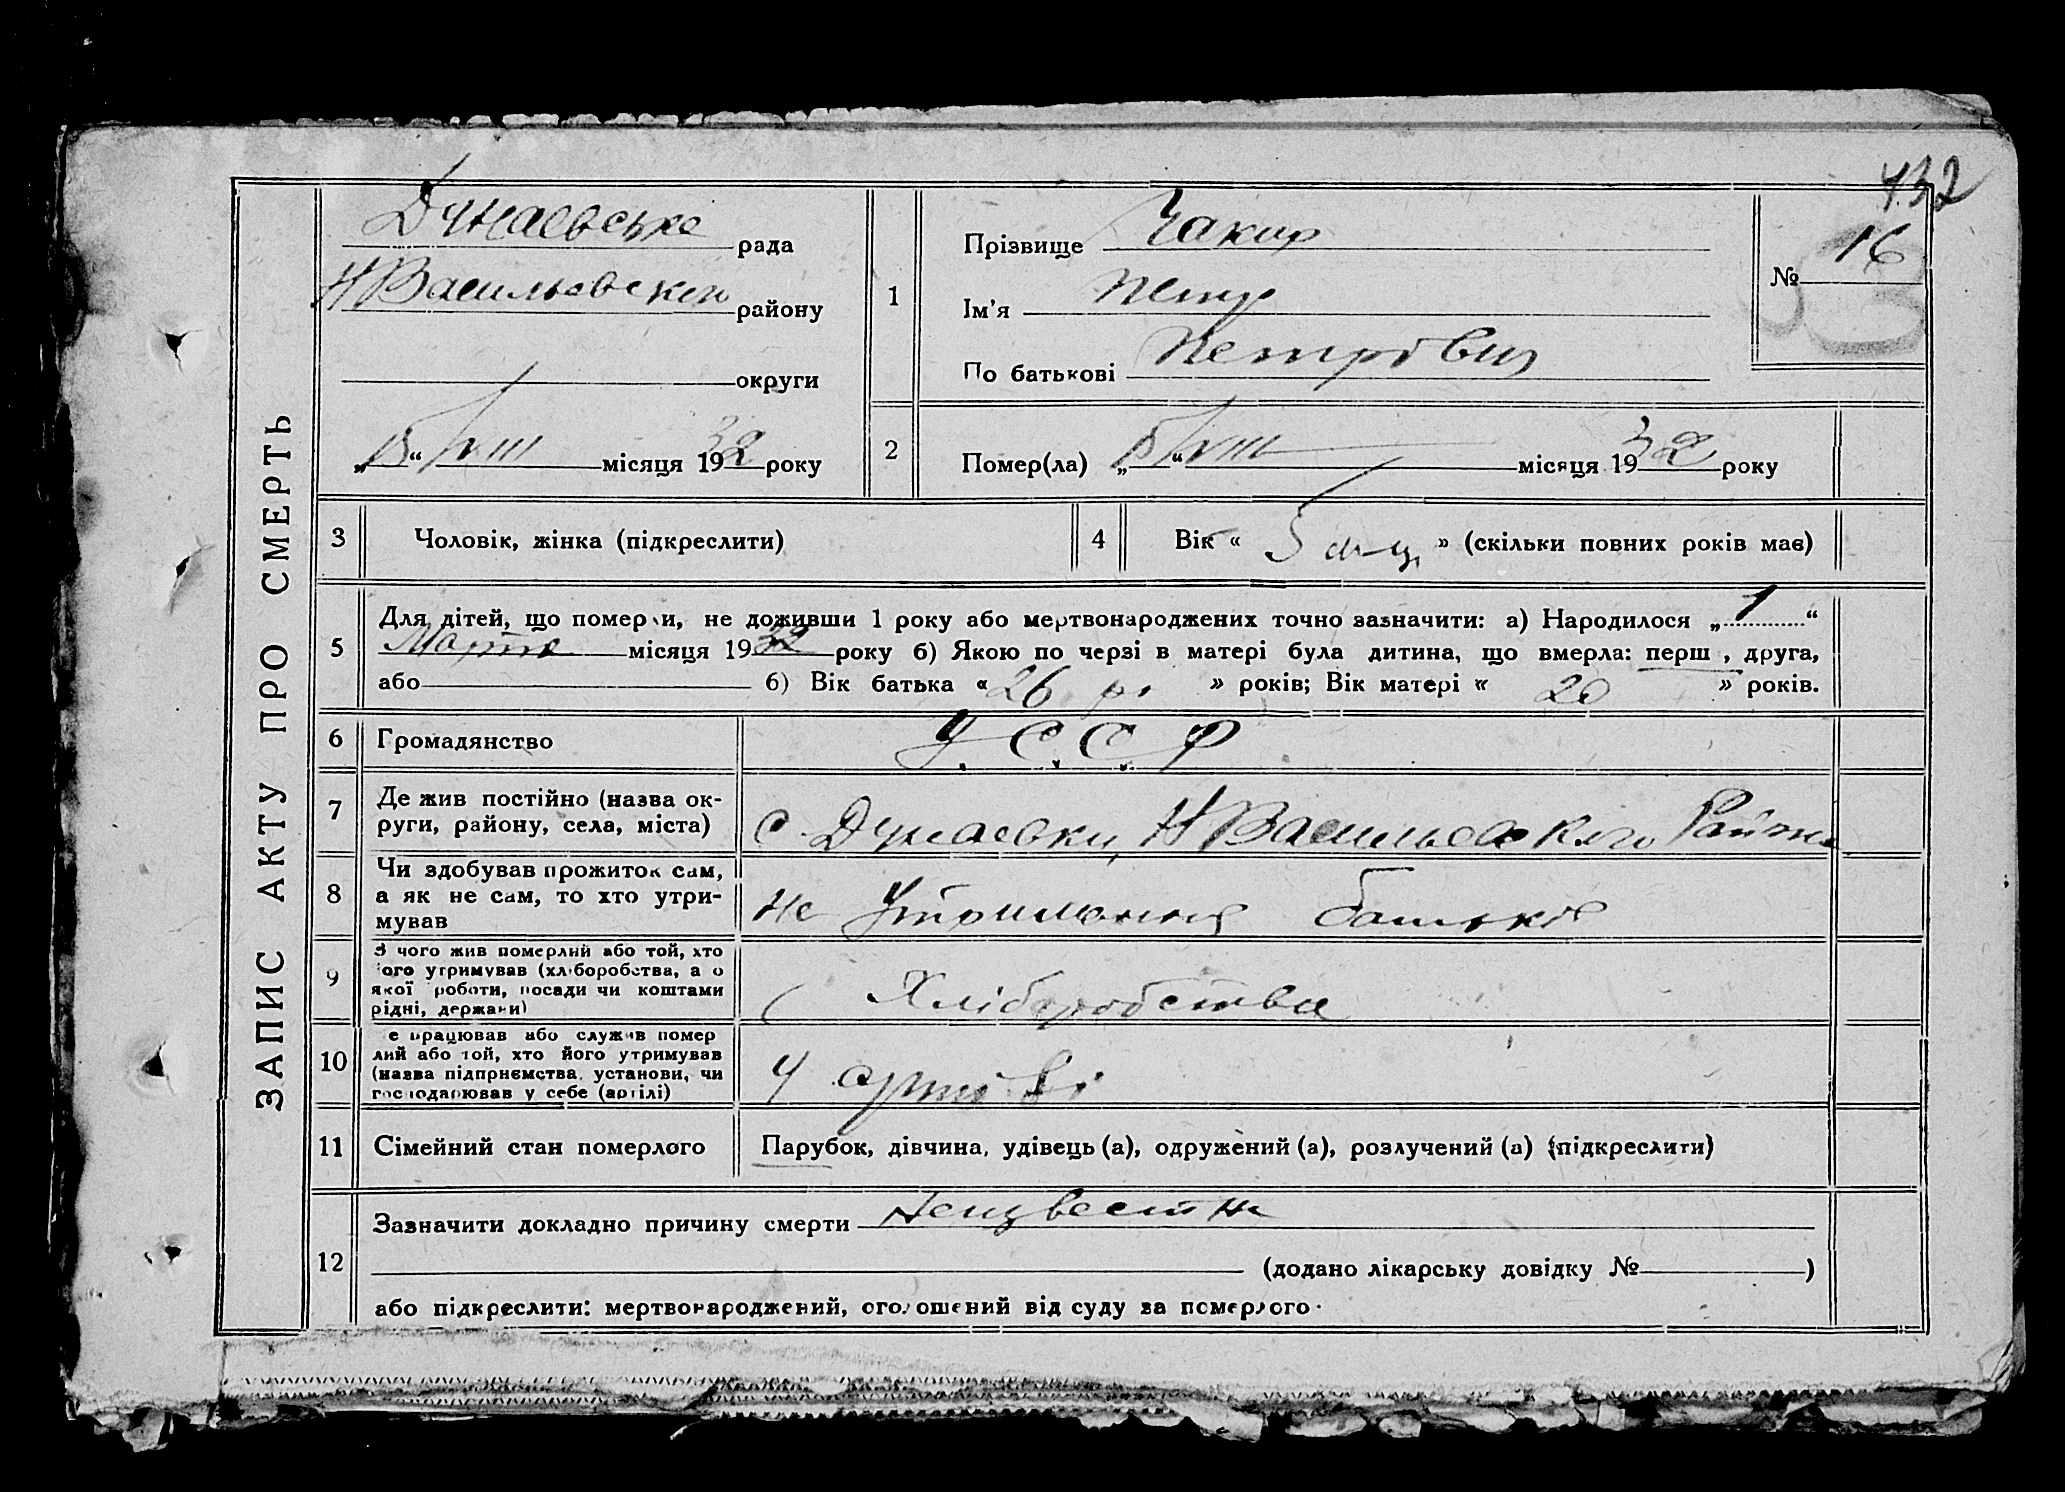 432
ЗАПИС АКТУ ПРО СМЕРТЬ
Дунаевська рада
Н Васильевского району
округи
„15“ VIII місяця 1932 року
1
Прізвище Чакир
Ім'я Петр
По батькові Петрович
№ 16
2
Помер(ла) „15“ VIII місяця 1932 року
3
Чоловік, жінка (підкреслити)
4
Вік « 5 » (скільки повних років має)
5
Для дітей, що померли, не доживши 1 року або мертвонароджених точно зазначити: а) Народилося „1“
Марта місяця 1932 року б) Якою по черзі в матері була дитина, що вмерла: перш , друга,
або б) Вік батька « 26 р. » років; Вік матері « 20 » років.
6
Громадянство
У. С. С. Р
7
Де жив постійно (назва ок-
руги, району, села, міста)
с. Дунаевки, Н Васильевского Району
8
Чи здобував прожиток сам,
а як не сам, то хто утри-
мував
На Утримання батьків
9
З чого жив померлий або той, хто
його утримував (хліборобства, а о
якої роботи, посади чи коштами
рідні, держави)
Хліборобства
10
е працював або служив помер
лий або той, хто його утримував
(назва підприємства, установи, чи
господарював у себе (артілі)
У артілі
11
Сімейний стан померлого
Парубок, дівчина, удівець (а), одружений (а), розлучений (а) (підкреслити)
12
Зазначити докладно причину смерти Неизвестна
(додано лікарську довідку № )
або підкреслити: мертвонароджений, оголошений від суду за померлого.